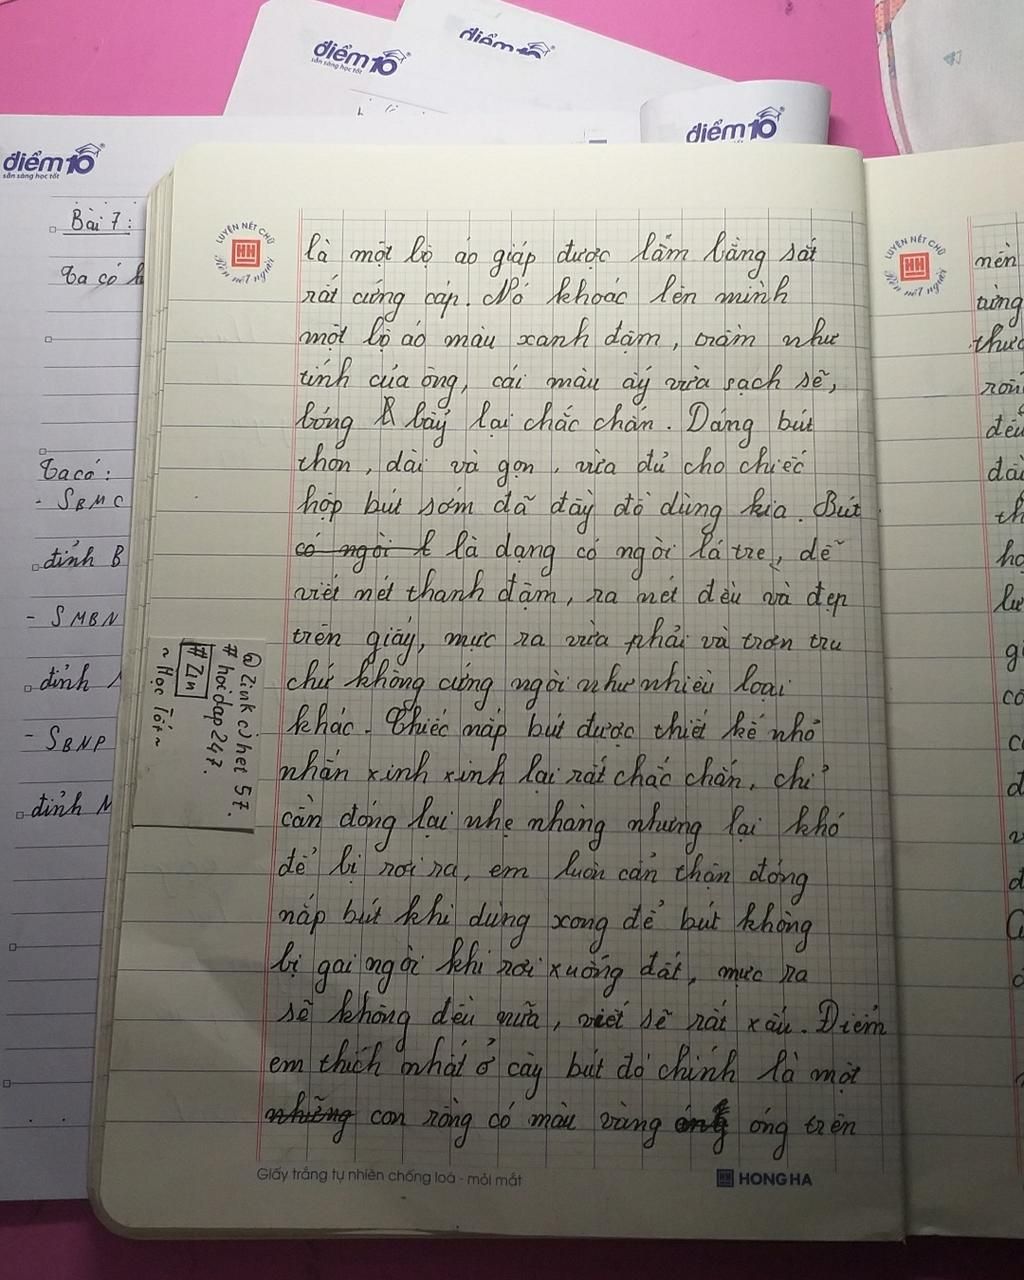 điểm10
sẵn sàng học tốt
điểm10
điểm10
điểm10
sẵn sàng học tốt
Bài 7:
Ta có
Ta có:
- SBMC
đỉnh B
- SMBN
đỉnh
- SBNP
đỉnh M
LUYỆN NÉT CHỮ
HH
Rèn nết người
là một bộ áo giáp được làm bằng sắt
rất cứng cáp. Nó khoác lên mình
một bộ áo màu xanh đậm, trầm như
tính của ông, cái màu ấy vừa sạch sẽ,
bóng bẩy lại chắc chắn. Dáng bút
thon, dài và gọn, vừa đủ cho chiếc
hộp bút sớm đã đầy đồ dùng kia. Bút
có ngòi l là dạng có ngòi lá tre, dễ
viết nét thanh đậm, ra nét đều và đẹp
trên giấy, mực ra vừa phải và trơn tru
chứ không cứng ngòi như nhiều loại
khác. Chiếc nắp bút được thiết kế nhỏ
nhắn xinh xinh lại rất chắc chắn, chỉ
cần đóng lại nhẹ nhàng nhưng lại khó
để bị rơi ra, em luôn cẩn thận đóng
nắp bút khi dùng xong để bút không
bị gai ngòi khi rơi xuống đất, mực ra
sẽ không đều nữa, viết sẽ rất xấu. Điểm
em thích nhất ở cây bút đó chính là một
những con rồng có màu vàng óng óng trên
Giấy trắng tự nhiên chống loá - mỏi mắt
HONG HA
# hoidap247.
#Zin
~ Học Tốt ~
LUYỆN NÉT CHỮ
HH
Rèn nết người
nên
từng
đều